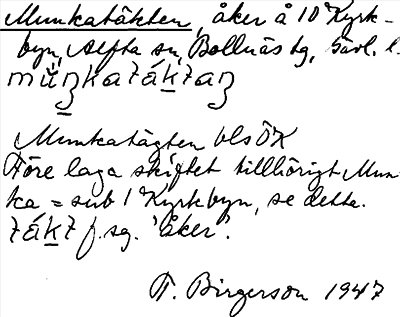 Munkatäkten, åker å 10 Kyrk-
byn, Alfta sn, Bollnäs tg, Gävl. l.
Munkatägten bls ÖK
Före laga skiftet tillhörigt Mun-
ka = sub 1 Kyrkbyn, se detta.
f. sg. 'åker'.
F. Birgerson 1947